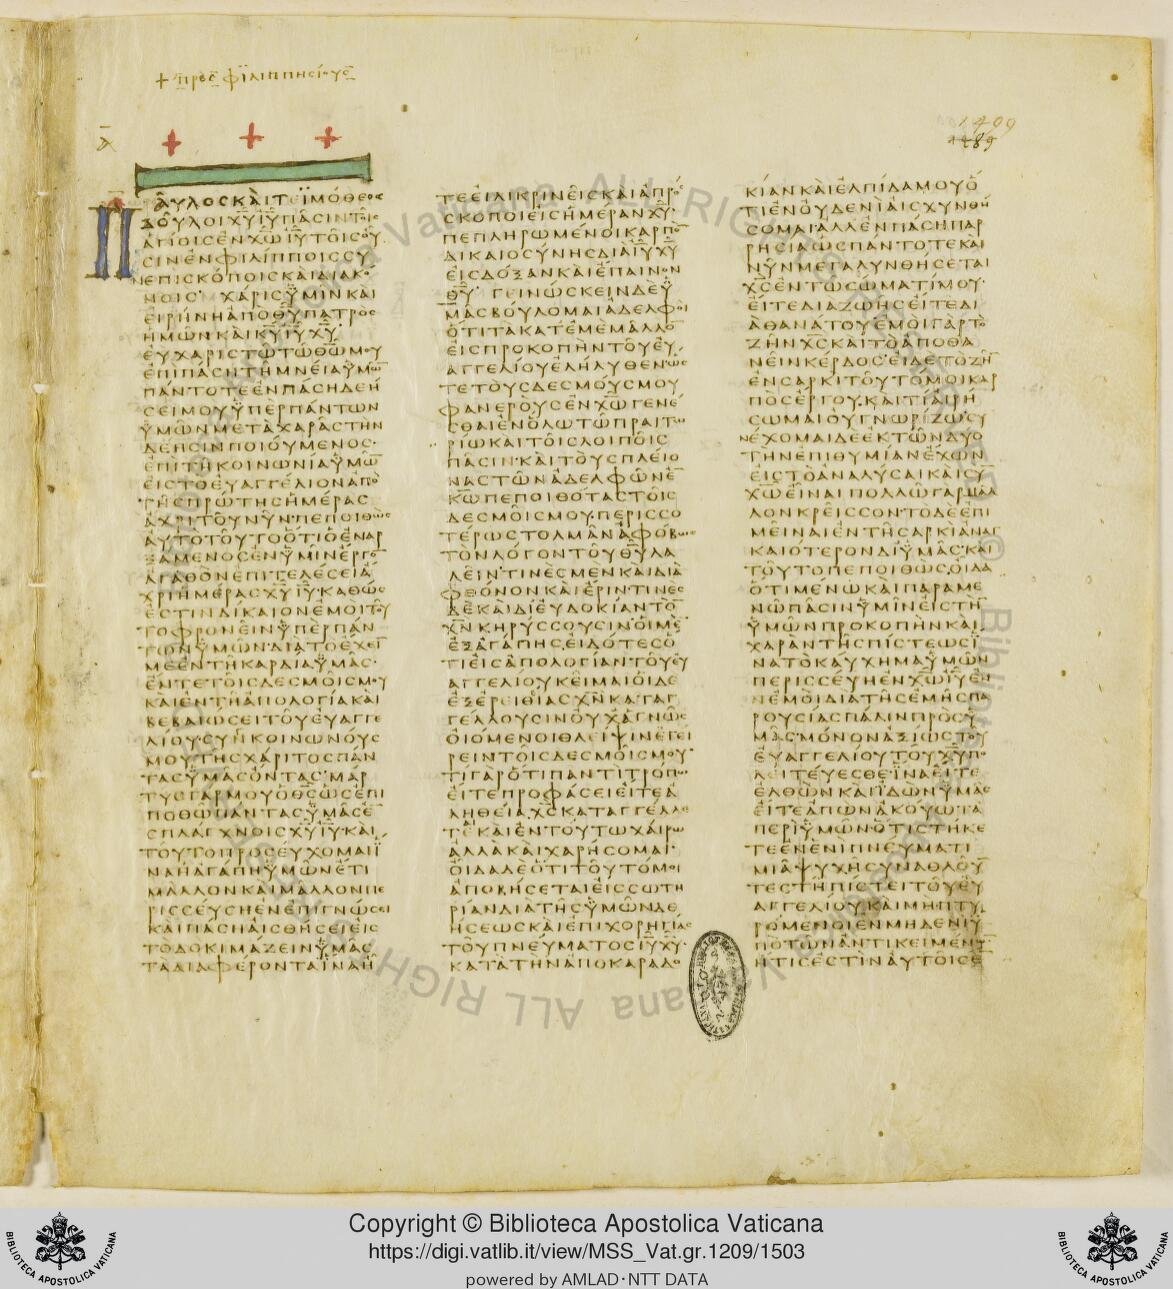 + προς φιλιππησιους
1499
1489
ΠΑΥΛΟΣ ΚΑΙ ΤΕΙΜΟΘΕΟΣ
ΔΟΥΛΟΙ ΧΥ ΙΥ ΠΑΣΙΝ ΤΟΙΣ
ΑΓΙΟΙΣ ΕΝ ΧΩ ΙΥ ΤΟΙΣ ΟΥ
ΣΙΝ ΕΝ ΦΙΛΙΠΠΟΙΣ ΣΥ
Ν ΕΠΙΣΚΟΠΟΙΣ ΚΑΙ ΔΙΑΚΟ
ΝΟΙΣ· ΧΑΡΙΣ ΫΜΙΝ ΚΑΙ
ΕΙΡΗΝΗ ΑΠΟ ΘΥ ΠΑΤΡΟΣ
ΗΜΩΝ ΚΑΙ ΚΥ ΙΥ ΧΥ·
ΕΥΧΑΡΙΣΤΩ ΤΩ ΘΩ ΜΟΥ
ΕΠΙ ΠΑΣΗ ΤΗ ΜΝΕΙΑ ΫΜΩ
ΠΑΝΤΟΤΕ ΕΝ ΠΑΣΗ ΔΕΗ
ΣΕΙ ΜΟΥ ΫΠΕΡ ΠΑΝΤΩΝ
ΫΜΩΝ ΜΕΤΑ ΧΑΡΑΣ ΤΗΝ
ΔΕΗΣΙΝ ΠΟΙΟΥΜΕΝΟΣ·
ΕΠΙ ΤΗ ΚΟΙΝΩΝΙΑ ΫΜΩ
ΕΙΣ ΤΟ ΕΥΑΓΓΕΛΙΟΝ ΑΠΟ
ΤΗΣ ΠΡΩΤΗΣ ΗΜΕΡΑΣ
ΑΧΡΙ ΤΟΥ ΝΥΝ· ΠΕΠΟΙΘΩΣ
ΑΥΤΟ ΤΟΥΤΟ ΟΤΙ Ο ΕΝΑΡ
ΞΑΜΕΝΟΣ ΕΝ ΫΜΙΝ ΕΡΓΟ
ΑΓΑΘΟΝ ΕΠΙΤΕΛΕΣΕΙ Α
ΧΡΙ ΗΜΕΡΑΣ ΧΥ ΙΥ· ΚΑΘΩΣ
ΕΣΤΙΝ ΔΙΚΑΙΟΝ ΕΜΟΙ ΤΟΥ
ΤΟ ΦΡΟΝΕΙΝ ΫΠΕΡ ΠΑΝ
ΤΩΝ ΫΜΩΝ· ΔΙΑ ΤΟ ΕΧΕΙ
ΜΕ ΕΝ ΤΗ ΚΑΡΔΙΑ ΫΜΑΣ·
ΕΝ ΤΕ ΤΟΙΣ ΔΕΣΜΟΙΣ ΜΟΥ
ΚΑΙ ΕΝ ΤΗ ΑΠΟΛΟΓΙΑ ΚΑΙ
ΒΕΒΑΙΩΣΕΙ ΤΟΥ ΕΥΑΓΓΕ
ΛΙΟΥ ΣΥΝΚΟΙΝΩΝΟΥΣ
ΜΟΥ ΤΗΣ ΧΑΡΙΤΟΣ ΠΑΝ
ΤΑΣ ΫΜΑΣ ΟΝΤΑΣ· ΜΑΡ
ΤΥΣ ΓΑΡ ΜΟΥ Ο ΘΣ ΩΣ ΕΠΙ
ΠΟΘΩ ΠΑΝΤΑΣ ΫΜΑΣ Ε
Ν ΣΠΛΑΓΧΝΟΙΣ ΧΥ ΙΥ· ΚΑΙ
ΤΟΥΤΟ ΠΡΟΣΕΥΧΟΜΑΙ Ϊ
ΝΑ Η ΑΓΑΠΗ ΫΜΩΝ ΕΤΙ
ΜΑΛΛΟΝ ΚΑΙ ΜΑΛΛΟΝ ΠΕ
ΡΙΣΣΕΥΣΗ ΕΝ ΕΠΙΓΝΩΣΕΙ
ΚΑΙ ΠΑΣΗ ΑΙΣΘΗΣΕΙ ΕΙΣ
ΤΟ ΔΟΚΙΜΑΖΕΙΝ ΫΜΑΣ
ΤΑ ΔΙΑΦΕΡΟΝΤΑ ΪΝΑ Η
ΤΕ ΕΙΛΙΚΡΙΝΕΙΣ ΚΑΙ ΑΠΡΟΣ
ΣΚΟΠΟΙ ΕΙΣ ΗΜΕΡΑΝ ΧΥ·
ΠΕΠΛΗΡΩΜΕΝΟΙ ΚΑΡΠΟ
ΔΙΚΑΙΟΣΥΝΗΣ ΔΙΑ ΙΥ ΧΥ
ΕΙΣ ΔΟΞΑΝ ΚΑΙ ΕΠΑΙΝΟΝ
ΘΥ· ΓΕΙΝΩΣΚΕΙΝ ΔΕ Ϋ
ΜΑΣ ΒΟΥΛΟΜΑΙ ΑΔΕΛΦΟΙ
ΟΤΙ ΤΑ ΚΑΤ ΕΜΕ ΜΑΛΛΟ
ΕΙΣ ΠΡΟΚΟΠΗΝ ΤΟΥ ΕΥ
ΑΓΓΕΛΙΟΥ ΕΛΗΛΥΘΕΝ ΩΣ
ΤΕ ΤΟΥΣ ΔΕΣΜΟΥΣ ΜΟΥ
ΦΑΝΕΡΟΥΣ ΕΝ ΧΩ ΓΕΝΕ
ΣΘΑΙ ΕΝ ΟΛΩ ΤΩ ΠΡΑΙΤΩ
ΡΙΩ ΚΑΙ ΤΟΙΣ ΛΟΙΠΟΙΣ
ΠΑΣΙΝ· ΚΑΙ ΤΟΥΣ ΠΛΕΙΟ
ΝΑΣ ΤΩΝ ΑΔΕΛΦΩΝ Ε
Ν ΚΩ ΠΕΠΟΙΘΟΤΑΣ ΤΟΙΣ
ΔΕΣΜΟΙΣ ΜΟΥ· ΠΕΡΙΣΣΟ
ΤΕΡΩΣ ΤΟΛΜΑΝ ΑΦΟΒΩΣ
ΤΟΝ ΛΟΓΟΝ ΤΟΥ ΘΥ ΛΑ
ΛΕΙΝ· ΤΙΝΕΣ ΜΕΝ ΚΑΙ ΔΙΑ
ΦΘΟΝΟΝ ΚΑΙ ΕΡΙΝ ΤΙΝΕΣ
ΔΕ ΚΑΙ ΔΙ ΕΥΔΟΚΙΑΝ ΤΟ
ΧΝ ΚΗΡΥΣΣΟΥΣΙΝ· ΟΙ ΜΕ
ΕΞ ΑΓΑΠΗΣ ΕΙΔΟΤΕΣ Ο
ΤΙ ΕΙΣ ΑΠΟΛΟΓΙΑΝ ΤΟΥ ΕΥ
ΑΓΓΕΛΙΟΥ ΚΕΙΜΑΙ ΟΙ ΔΕ
ΕΞ ΕΡΕΙΘΙΑΣ ΧΝ ΚΑΤΑΓ
ΓΕΛΛΟΥΣΙΝ ΟΥΧ ΑΓΝΩΣ
ΟΙΟΜΕΝΟΙ ΘΛΕΙΨΙΝ ΕΓΕΙ
ΡΕΙΝ ΤΟΙΣ ΔΕΣΜΟΙΣ ΜΟΥ·
ΤΙ ΓΑΡ ΟΤΙ ΠΑΝΤΙ ΤΡΟΠΩ
ΕΙΤΕ ΠΡΟΦΑΣΕΙ ΕΙΤΕ Α
ΛΗΘΕΙΑ ΧΣ ΚΑΤΑΓΓΕΛΛΕ
ΤΕ ΚΑΙ ΕΝ ΤΟΥΤΩ ΧΑΙΡΩ
ΑΛΛΑ ΚΑΙ ΧΑΡΗΣΟΜΑΙ·
ΟΙΔΑ ΔΕ ΟΤΙ ΤΟΥΤΟ ΜΟΙ
ΑΠΟΒΗΣΕΤΑΙ ΕΙΣ ΣΩΤΗ
ΡΙΑΝ ΔΙΑ ΤΗΣ ΫΜΩΝ ΔΕ
ΗΣΕΩΣ ΚΑΙ ΕΠΙΧΟΡΗΓΙΑΣ
ΤΟΥ ΠΝΕΥΜΑΤΟΣ ΙΥ ΧΥ·
ΚΑΤΑ ΤΗΝ ΑΠΟΚΑΡΑΔΟ
ΚΙΑΝ ΚΑΙ ΕΛΠΙΔΑ ΜΟΥ Ο
ΤΙ ΕΝ ΟΥΔΕΝΙ ΑΙΣΧΥΝΘΗ
ΣΟΜΑΙ ΑΛΛ ΕΝ ΠΑΣΗ ΠΑΡ
ΡΗΣΙΑ ΩΣ ΠΑΝΤΟΤΕ ΚΑΙ
ΝΥΝ ΜΕΓΑΛΥΝΘΗΣΕΤΑΙ
ΧΣ ΕΝ ΤΩ ΣΩΜΑΤΙ ΜΟΥ·
ΕΙΤΕ ΔΙΑ ΖΩΗΣ ΕΙΤΕ ΔΙ
Α ΘΑΝΑΤΟΥ ΕΜΟΙ ΓΑΡ ΤΟ
ΖΗΝ ΧΣ ΚΑΙ ΤΟ ΑΠΟΘΑ
ΝΕΙΝ ΚΕΡΔΟΣ· ΕΙ ΔΕ ΤΟ ΖΗ
ΕΝ ΣΑΡΚΙ ΤΟΥΤΟ ΜΟΙ ΚΑΡ
ΠΟΣ ΕΡΓΟΥ· ΚΑΙ ΤΙ ΑΙΡΗ
ΣΩΜΑΙ ΟΥ ΓΝΩΡΙΖΩ· ΣΥ
ΝΕΧΟΜΑΙ ΔΕ ΕΚ ΤΩΝ ΔΥΟ
ΤΗΝ ΕΠΙΘΥΜΙΑΝ ΕΧΩΝ
ΕΙΣ ΤΟ ΑΝΑΛΥΣΑΙ ΚΑΙ ΣΥ
ΧΩ ΕΙΝΑΙ ΠΟΛΛΩ ΓΑΡ ΜΑΛ
ΛΟΝ ΚΡΕΙΣΣΟΝ· ΤΟ ΔΕ ΕΠΙ
ΜΕΙΝΑΙ ΕΝ ΤΗ ΣΑΡΚΙ ΑΝΑΓ
ΚΑΙΟΤΕΡΟΝ ΔΙ ΫΜΑΣ· ΚΑΙ
ΤΟΥΤΟ ΠΕΠΟΙΘΩΣ ΟΙΔΑ
ΟΤΙ ΜΕΝΩ ΚΑΙ ΠΑΡΑΜΕ
ΝΩ ΠΑΣΙΝ ΫΜΙΝ ΕΙΣ ΤΗ
ΫΜΩΝ ΠΡΟΚΟΠΗΝ ΚΑΙ
ΧΑΡΑΝ ΤΗΣ ΠΙΣΤΕΩΣ Ϊ
ΝΑ ΤΟ ΚΑΥΧΗΜΑ ΫΜΩΝ
ΠΕΡΙΣΣΕΥΗ ΕΝ ΧΩ ΙΥ ΕΝ
ΕΜΟΙ ΔΙΑ ΤΗΣ ΕΜΗΣ ΠΑ
ΡΟΥΣΙΑΣ ΠΑΛΙΝ ΠΡΟΣ Ϋ
ΜΑΣ· ΜΟΝΟΝ ΑΞΙΩΣ ΤΟΥ
ΕΥΑΓΓΕΛΙΟΥ ΤΟΥ ΧΥ ΠΟ
ΛΕΙΤΕΥΕΣΘΕ· ΪΝΑ ΕΙΤΕ
ΕΛΘΩΝ ΚΑΙ ΪΔΩΝ ΫΜΑΣ
ΕΙΤΕ ΑΠΩΝ ΑΚΟΥΩ ΤΑ
ΠΕΡΙ ΫΜΩΝ· ΟΤΙ ΣΤΗΚΕ
ΤΕ ΕΝ ΕΝΙ ΠΝΕΥΜΑΤΙ
ΜΙΑ ΨΥΧΗ ΣΥΝΑΘΛΟΥ
ΤΕΣ ΤΗ ΠΙΣΤΕΙ ΤΟΥ ΕΥ
ΑΓΓΕΛΙΟΥ ΚΑΙ ΜΗ ΠΤΥ
ΡΟΜΕΝΟΙ ΕΝ ΜΗΔΕΝΙ Ϋ
ΠΟ ΤΩΝ ΑΝΤΙΚΕΙΜΕΝΩ
ΗΤΙΣ ΕΣΤΙΝ ΑΥΤΟΙΣ Ε
Copyright © Biblioteca Apostolica Vaticana
https://digi.vatlib.it/view/MSS_Vat.gr.1209/1503
powered by AMLAD·NTT DATA
BIBLIOTECA APOSTOLICA VATICANA
BIBLIOTECA APOSTOLICA VATICANA